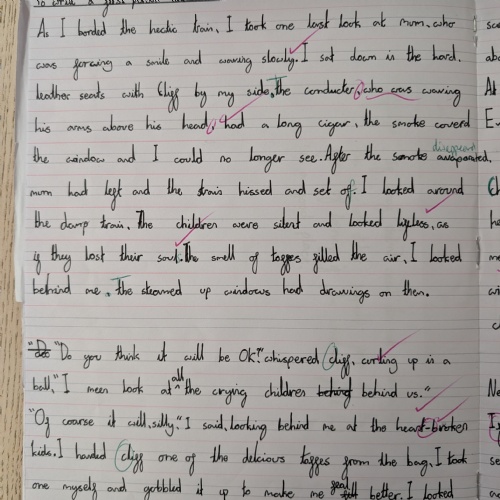 As I borded the hectic train, I took one last look at mum, who
was forcing a smile and waving slowly. I sat down in the hard,
leather seats with Cliff by my side, The conductor, who was waving
his arms above his head, had a long cigar, the smoke coverd
disappeared
the window and I could no longer see. After the smoke evaporated,
mum had left and the train hissed and set of. I looked around
the damp train. The children were silent and looked lifeless, as
if they lost their soul. The smell of toffees filled the air, I looked
behind me. The steamed up windows had drawings on then.
"Do "Do you think it will be OK?" whispered Cliff, curling up in a
ball, "I meen look at all the crying children behind behind us."
"Of coarse it will, silly." I said, looking behind me at the heart-broken
kids. I handed Cliff one of the delicious toffees from the bag, I took
one myself and gobbled it up to make me feel better. I looked